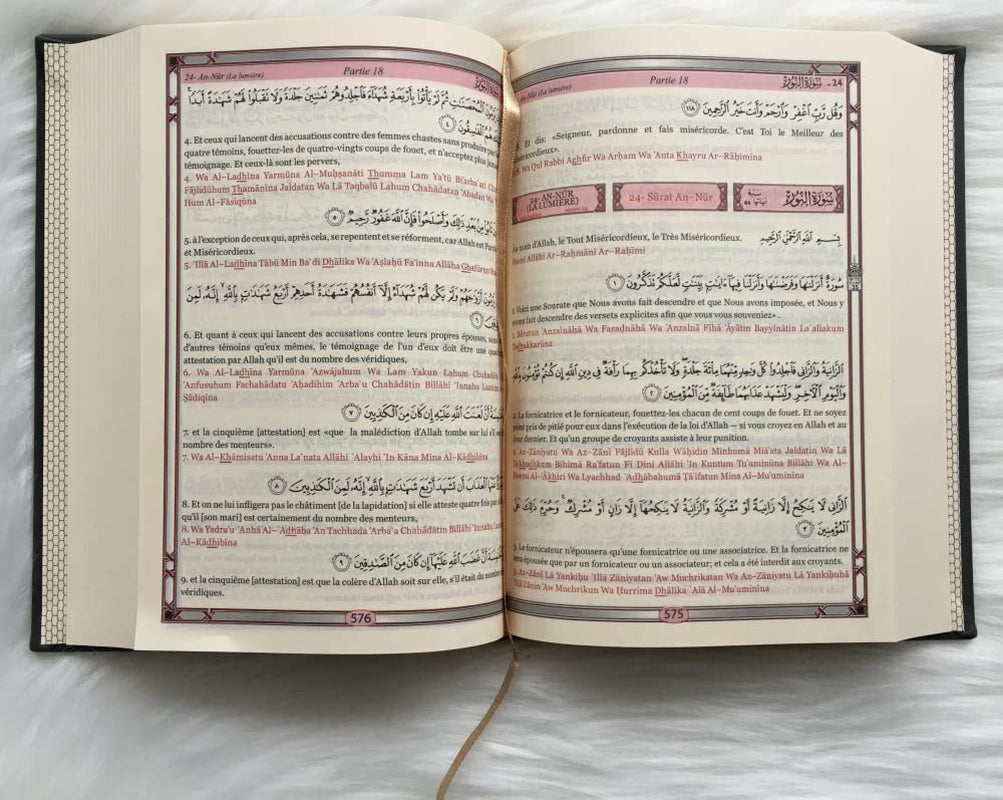 Partie 18
24 - سُورَةُ النُّورِ
An-Nūr (La lumière)
وَقُل رَّبِّ ٱغْفِرْ وَٱرْحَمْ وَأَنتَ خَيْرُ ٱلرَّٰحِمِينَ ١١٨
Et dis: «Seigneur, pardonne et fais miséricorde. C'est Toi le Meilleur des
miséricordieux».
Wa Qul Rabbi Aghfir Wa Arḥam Wa 'Anta Khayru Ar-Rāḥimīna
24- AN-NŪR
(LA LUMIÈRE)
24- Sūrat An-Nūr
سُورَةُ النُّورِ
بِسْمِ ٱللَّهِ ٱلرَّحْمَٰنِ ٱلرَّحِيمِ
nom d'Allah, le Tout Miséricordieux, le Très Miséricordieux.
Allāhi Ar-Raḥmāni Ar-Raḥīmi
سُورَةٌ أَنزَلْنَٰهَا وَفَرَضْنَٰهَا وَأَنزَلْنَا فِيهَآ ءَايَٰتٍۭ بَيِّنَٰتٍ لَّعَلَّكُمْ تَذَكَّرُونَ ١
Voici une Sourate que Nous avons fait descendre et que Nous avons imposée, et Nous y
avons fait descendre des versets explicites afin que vous vous souveniez» .
Sūratun 'Anzalnāhā Wa Faraḍnāhā Wa 'Anzalnā Fīhā 'Āyātin Bayyinātin La`allakum
Tadhakkarūna
ٱلزَّانِيَةُ وَٱلزَّانِى فَٱجْلِدُوا۟ كُلَّ وَٰحِدٍ مِّنْهُمَا مِا۟ئَةَ جَلْدَةٍ وَلَا تَأْخُذْكُم بِهِمَا رَأْفَةٌ فِى دِينِ ٱللَّهِ إِن كُنتُمْ تُؤْمِنُونَ بِٱللَّهِ
وَٱلْيَوْمِ ٱلْءَاخِرِ وَلْيَشْهَدْ عَذَابَهُمَا طَآئِفَةٌ مِّنَ ٱلْمُؤْمِنِينَ ٢
La fornicatrice et le fornicateur, fouettez-les chacun de cent coups de fouet. Et ne soyez
point pris de pitié pour eux dans l'exécution de la loi d'Allah – si vous croyez en Allah et au
Jour dernier. Et qu'un groupe de croyants assiste à leur punition.
Az-Zāniyatu Wa Az-Zānī Fājlidū Kulla Wāḥidin Minhumā Miā'ata Jaldatin Wa Lā
Ta'khudhkum Bihimā Ra'fatun Fī Dīni Allāhi 'In Kuntum Tu'uminūna Billāhi Wa Al-
Yawmi Al-'Ākhiri Wa Lyachhad `Adhābahumā Ṭā'ifatun Mina Al-Mu'uminīna
ٱلزَّانِى لَا يَنكِحُ إِلَّا زَانِيَةً أَوْ مُشْرِكَةً وَٱلزَّانِيَةُ لَا يَنكِحُهَآ إِلَّا زَانٍ أَوْ مُشْرِكٌ وَحُرِّمَ ذَٰلِكَ عَلَى
ٱلْمُؤْمِنِينَ ٣
3. Le fornicateur n'épousera qu'une fornicatrice ou une associatrice. Et la fornicatrice ne
sera épousée que par un fornicateur ou un associateur; et cela a été interdit aux croyants.
3. Az-Zānī Lā Yankiḥu 'Illā Zāniyatan 'Aw Muchrikatan Wa Az-Zāniyatu Lā Yankiḥuhā
'Illā Zānin 'Aw Muchrikun Wa Ḥurrima Dhālika `Alá Al-Mu'uminīna
575
24- An-Nūr (La lumière)
Partie 18
يَرْمُونَ ٱلْمُحْصَنَٰتِ ثُمَّ لَمْ يَأْتُوا۟ بِأَرْبَعَةِ شُهَدَآءَ فَٱجْلِدُوهُمْ ثَمَٰنِينَ جَلْدَةً وَلَا تَقْبَلُوا۟ لَهُمْ شَهَٰدَةً أَبَدًا
هُمُ ٱلْفَٰسِقُونَ ٤
4. Et ceux qui lancent des accusations contre des femmes chastes sans produire par
quatre témoins, fouettez-les de quatre-vingts coups de fouet, et n'acceptez plus jamais
témoignage. Et ceux-là sont les pervers,
4. Wa Al-Ladhīna Yarmūna Al-Muḥṣanāti Thumma Lam Ya'tū Bi'arba`ati
Fājlidūhum Thamānīna Jaldatan Wa Lā Taqbalū Lahum Chahādatan 'Abadāan Wa
Hum Al-Fāsiqūna
تَابُوا۟ مِنۢ بَعْدِ ذَٰلِكَ وَأَصْلَحُوا۟ فَإِنَّ ٱللَّهَ غَفُورٌ رَّحِيمٌ ٥
5. à l'exception de ceux qui, après cela, se repentent et se réforment, car Allah est
et Miséricordieux.
5. 'Illā Al-Ladhīna Tābū Min Ba`di Dhālika Wa 'Aṣlaḥū Fa'inna Allāha Ghafūrun
يَرْمُونَ أَزْوَٰجَهُمْ وَلَمْ يَكُن لَّهُمْ شُهَدَآءُ إِلَّآ أَنفُسُهُمْ فَشَهَٰدَةُ أَحَدِهِمْ أَرْبَعُ شَهَٰدَٰتٍۭ بِٱللَّهِ إِنَّهُۥ لَمِنَ
٦
6. Et quant à ceux qui lancent des accusations contre leurs propres épouses, sans
d'autres témoins qu'eux mêmes, le témoignage de l'un d'eux doit être une
attestation par Allah qu'il est du nombre des véridiques,
6. Wa Al-Ladhīna Yarmūna 'Azwājahum Wa Lam Yakun Lahum
'Anfusuhum Fachahādatu 'Aḥadihim 'Arba`u Chahādātin Billāhi 'Innahu Lamina
Ṣādiqīna
أَنَّ لَعْنَتَ ٱللَّهِ عَلَيْهِ إِن كَانَ مِنَ ٱلْكَٰذِبِينَ ٧
7. et la cinquième [attestation] est «que la malédiction d'Allah tombe sur lui s'il
nombre des menteurs».
7. Wa Al-Khāmisatu 'Anna La`nata Allāhi `Alayhi 'In Kāna Mina Al-Kādhibīna
ٱلْعَذَابَ أَن تَشْهَدَ أَرْبَعَ شَهَٰدَٰتٍۭ بِٱللَّهِ إِنَّهُۥ لَمِنَ ٱلْكَٰذِبِينَ ٨
8. Et on ne lui infligera pas le châtiment [de la lapidation] si elle atteste quatre fois par
qu'il [son mari] est certainement du nombre des menteurs,
8. Wa Yadra'u `Anhā Al-`Adhāba 'An Tachhada 'Arba`a Chahādātin Billāhi 'Innahu
Al-Kādhibīna
أَنَّ غَضَبَ ٱللَّهِ عَلَيْهَآ إِن كَانَ مِنَ ٱلصَّٰدِقِينَ ٩
9. et la cinquième [attestation] est que la colère d'Allah soit sur elle, s'il était du nombre
véridiques.
576